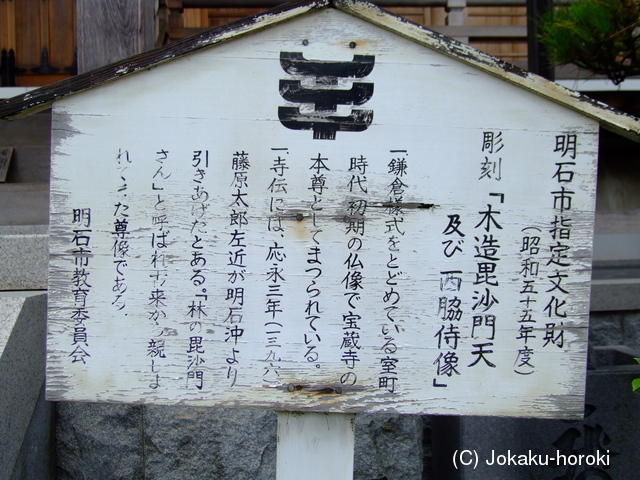 明石市指定文化財
(昭和五十五年度)
彫刻「木造毘沙門天
及び両脇侍像」
一鎌倉様式をとどめている室町
時代初期の仏像で宝蔵寺の
本尊としてまつられている。
一寺伝には、応永三年(一三九六)
藤原太郎左近が明石沖より
引きあげたとある。「林の毘沙門
さん」と呼ばれ古来から親しま
れてきた尊像である。
明石市教育委員会
(C) Jokaku-horoki